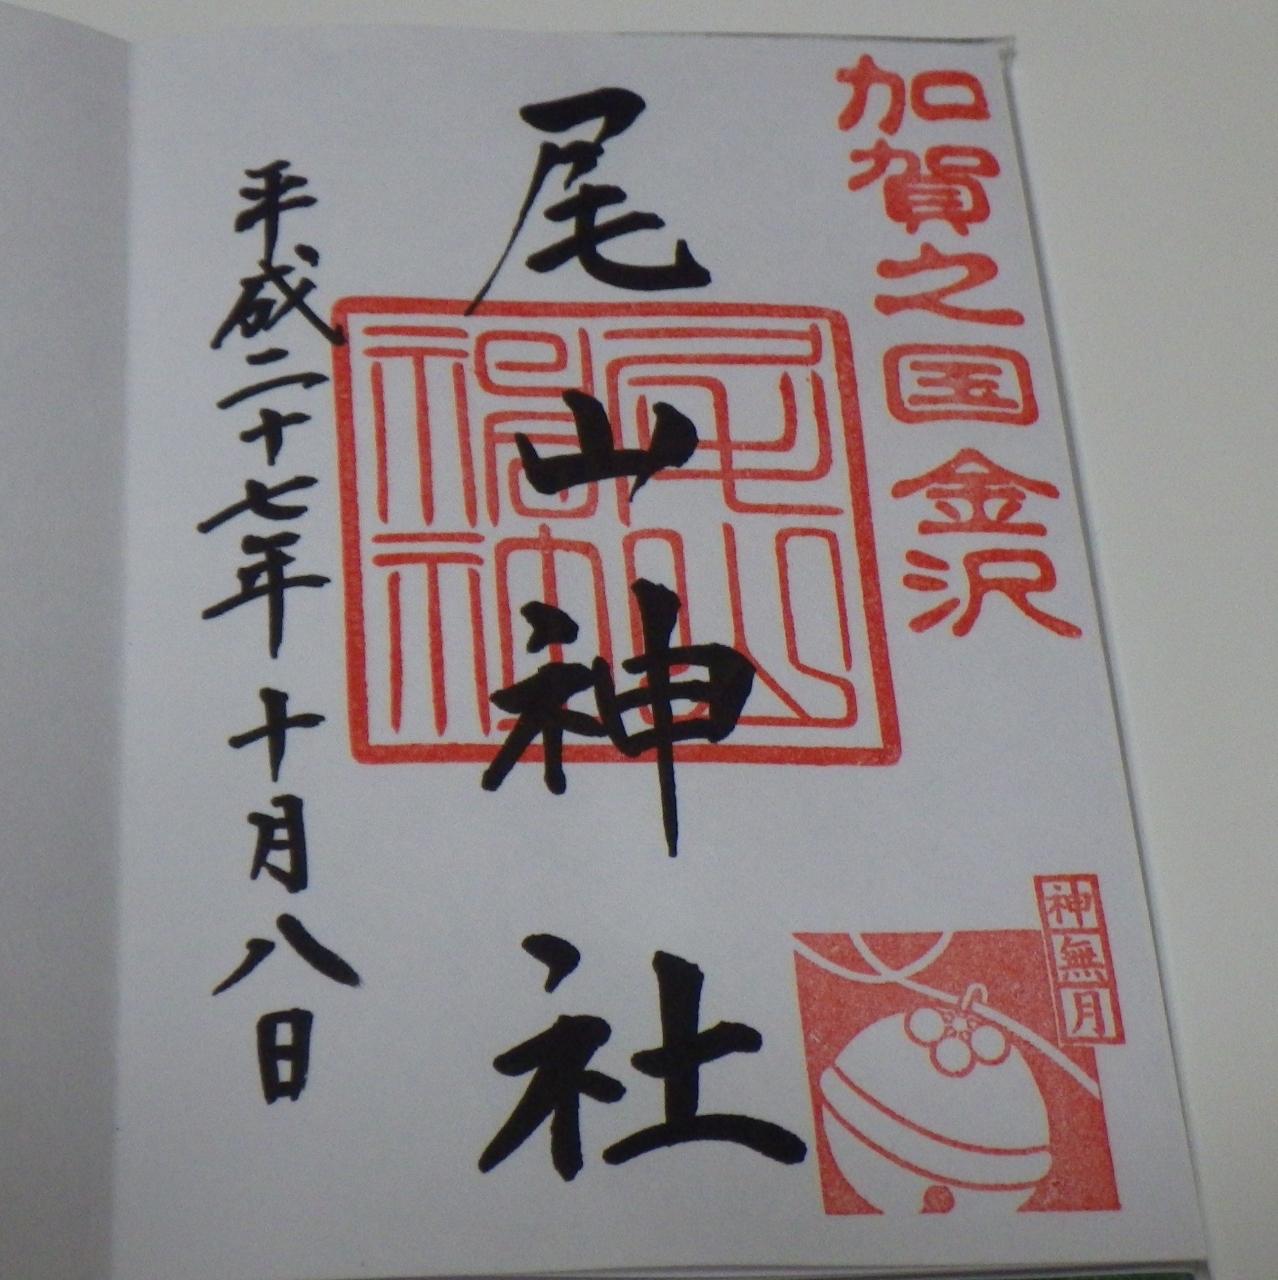 加賀之国金沢
尾山神社
平成二十七年十月八日
神無月